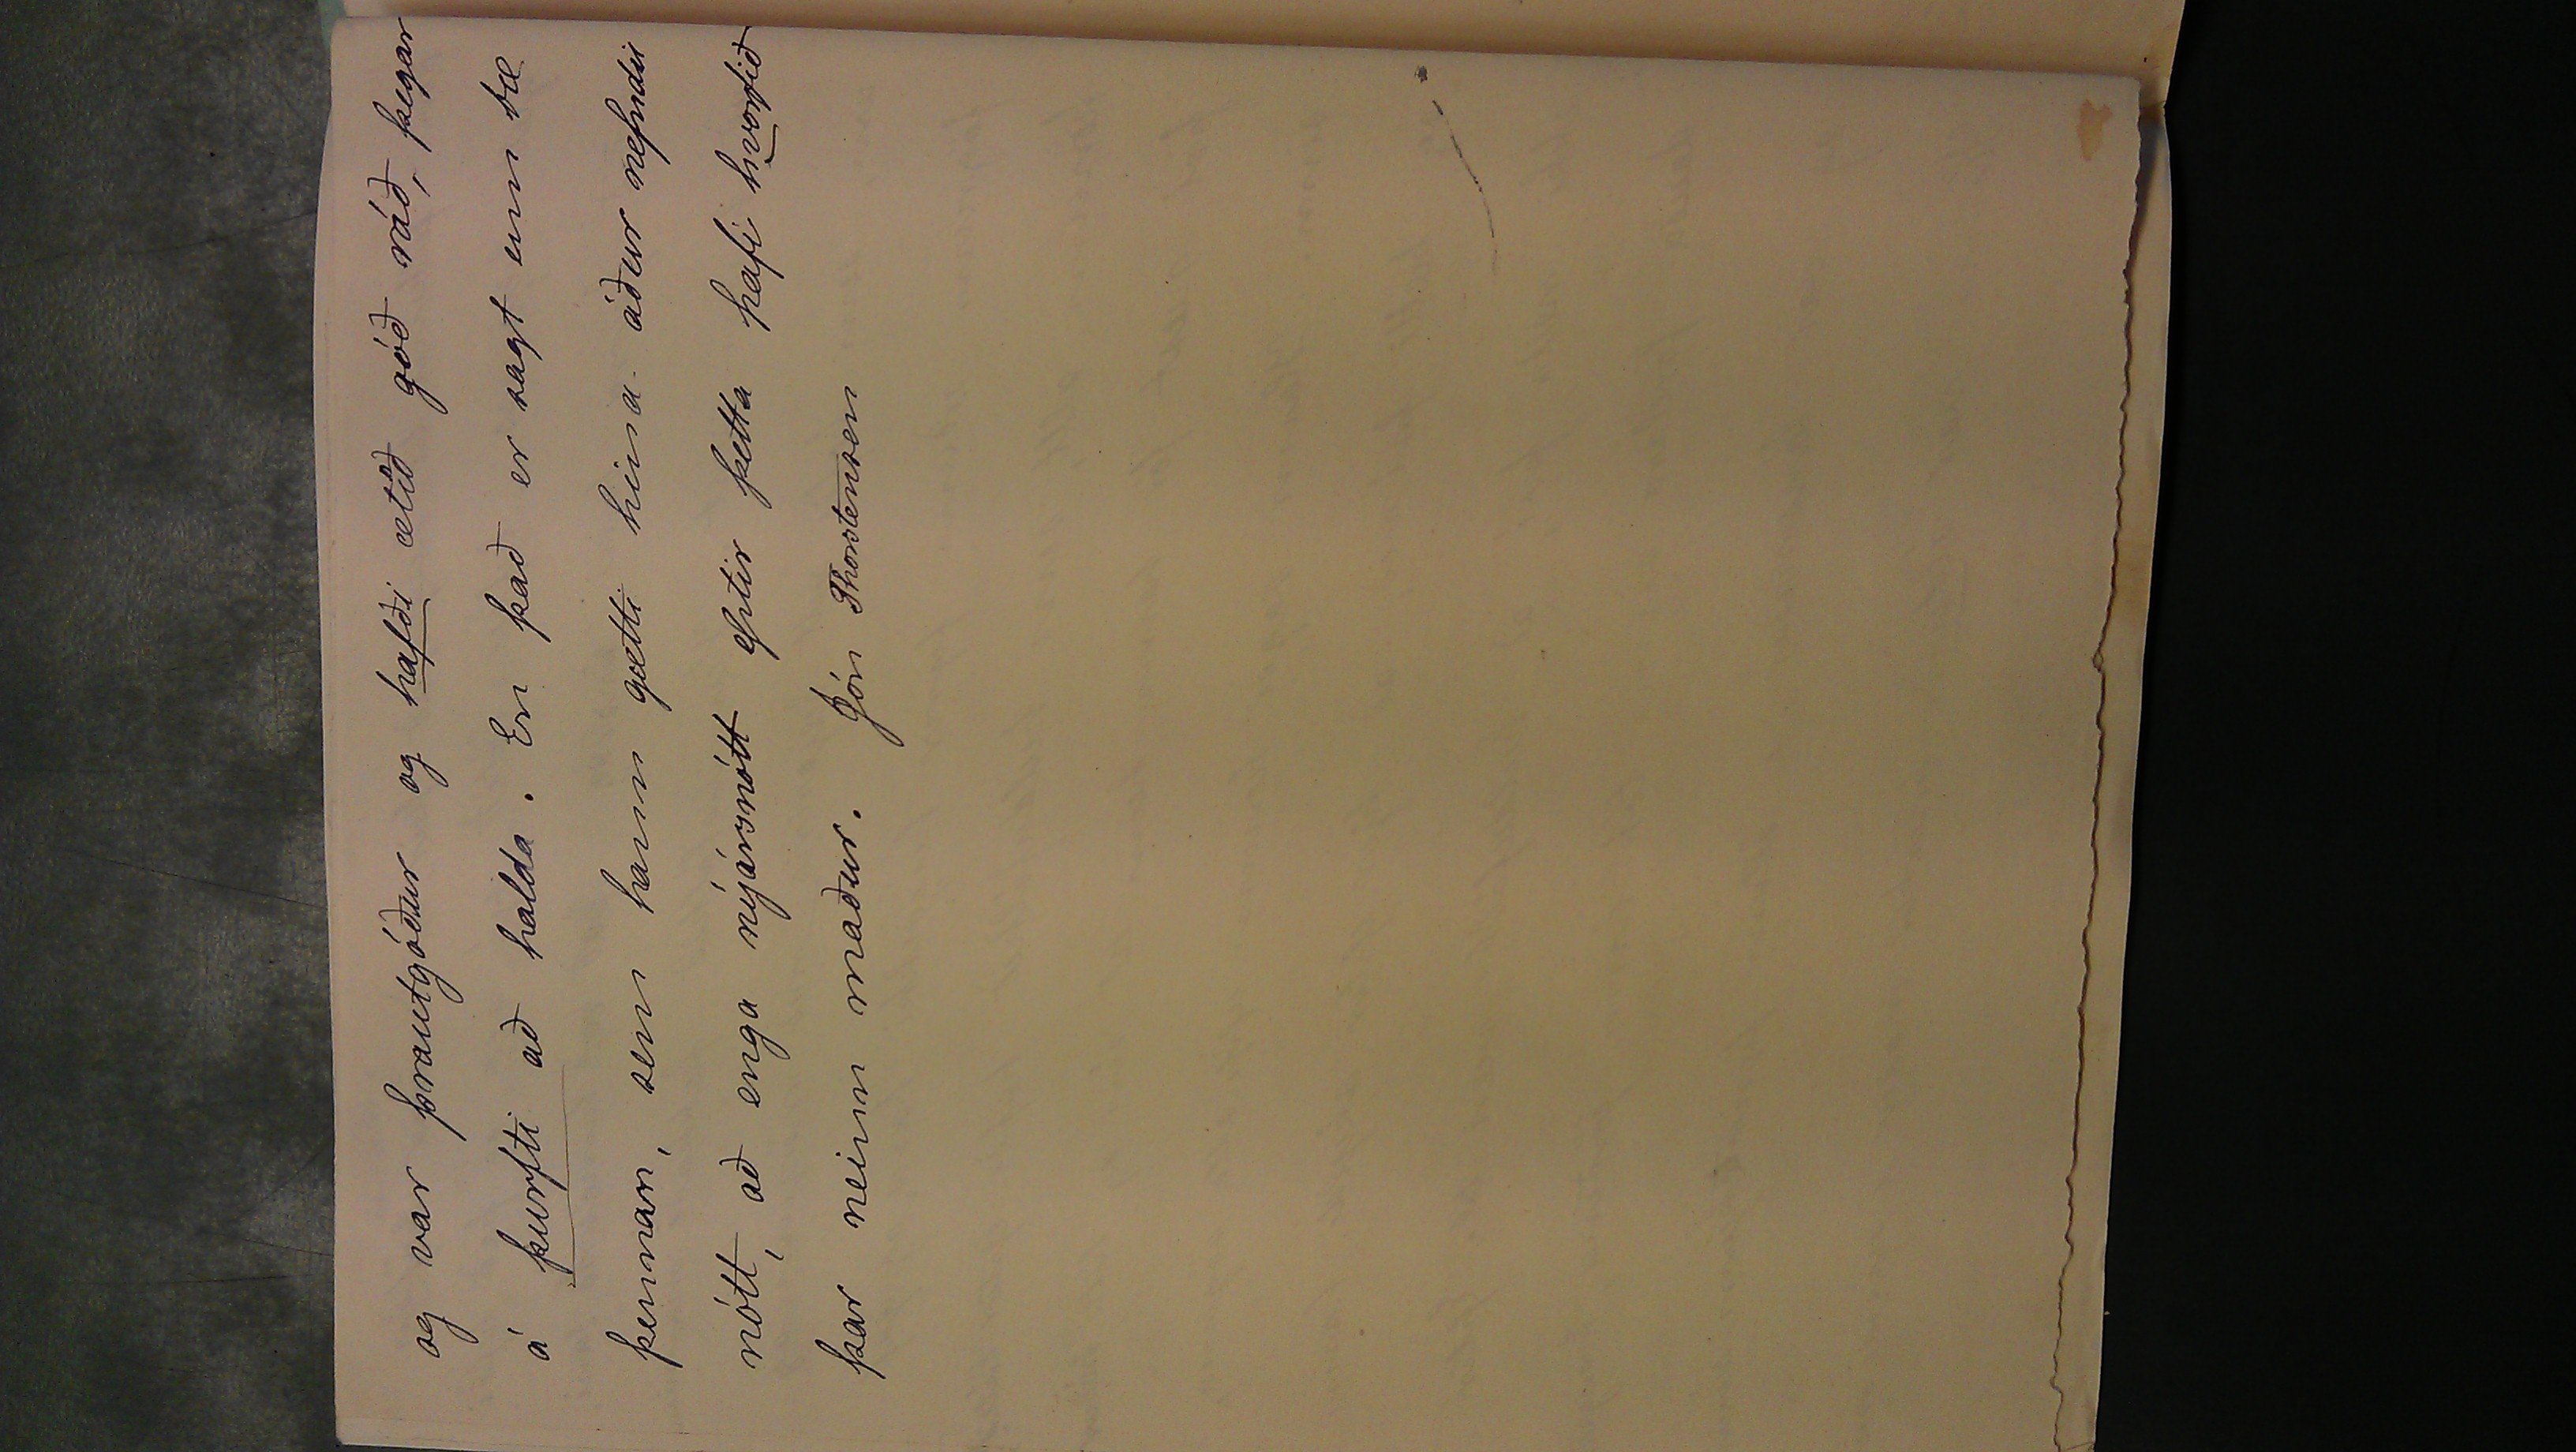 og var þrautgóður og hafði ætíð góð ráð, þegar
á þurfti að halda. En það er sagt um bæ
þennan, sem hann gætti hina áður nefndu
nótt, að enga nýjársnótt eptir þetta hafi hvorfið
þar neinn maður. Jón Thorstensen